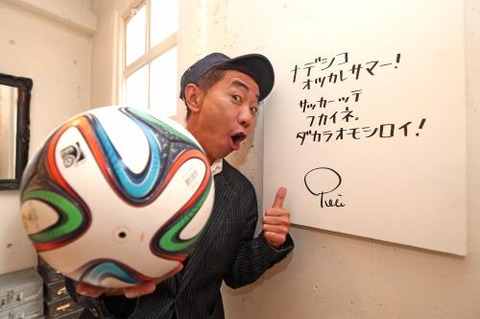 ナデシコ
オツカレサマー!
サッカーッテ
フカイネ。
ダカラオモシロイ!